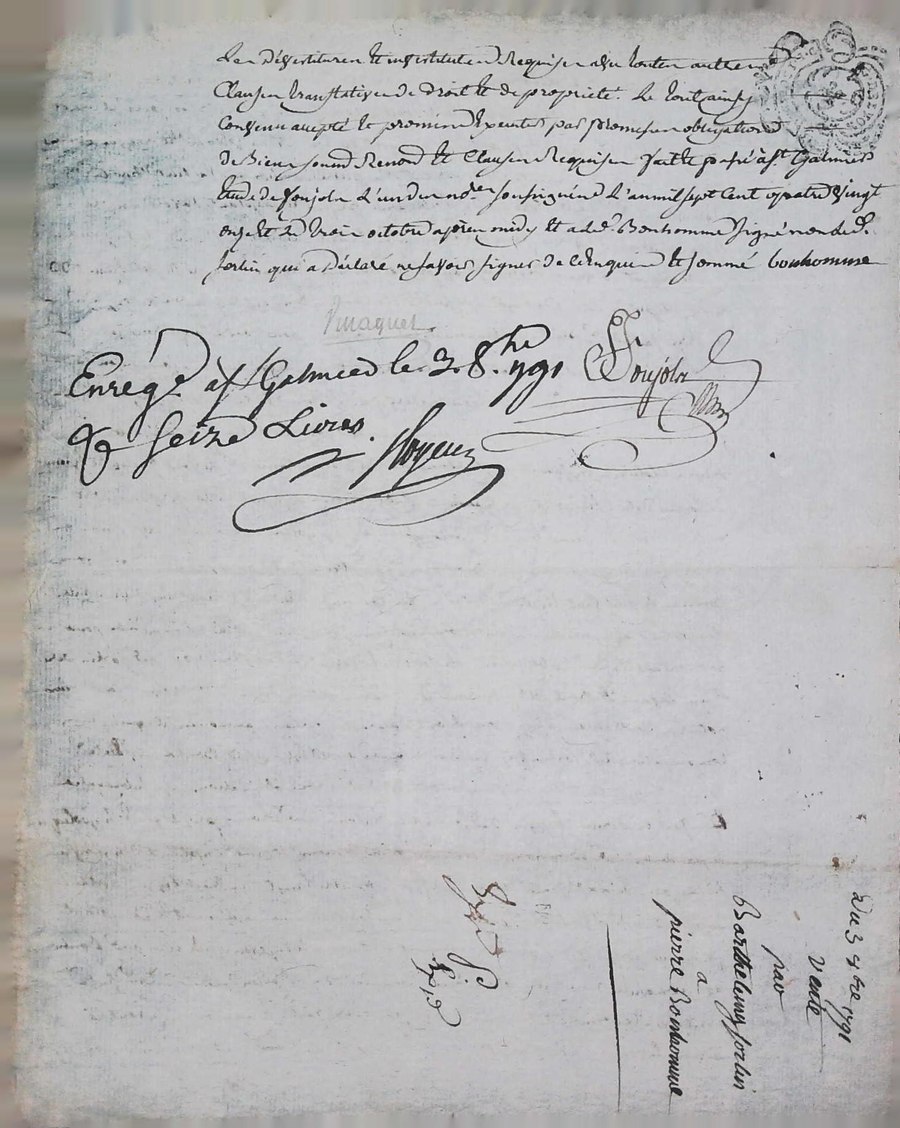 Les dévestitures et investitures Requises avec toutes autres
Clauses translatives de droit et de propriété. Le tout ainsy
Convenu accepté et promis exécuter par promesses obligations
de Biens soumd Renond et Clauses Requises fait et passé à st Galmier
étude de Soujols L'un des nores soussignés L'an mil sept Cent quatre vingt
onze et le trois octobre après midy et a led. Bonhomme signé non led.
forlin qui a Déclaré ne savoir signer de ce Enquis et sommé bonhomme
Enregé. à st Galmier le 3. 8.bre 1791
Soujols
nore
R. Seize Livres.
Du 3 8bre 1791
Vente
par
Barthelemy forlin
a
pierre Bonhomme